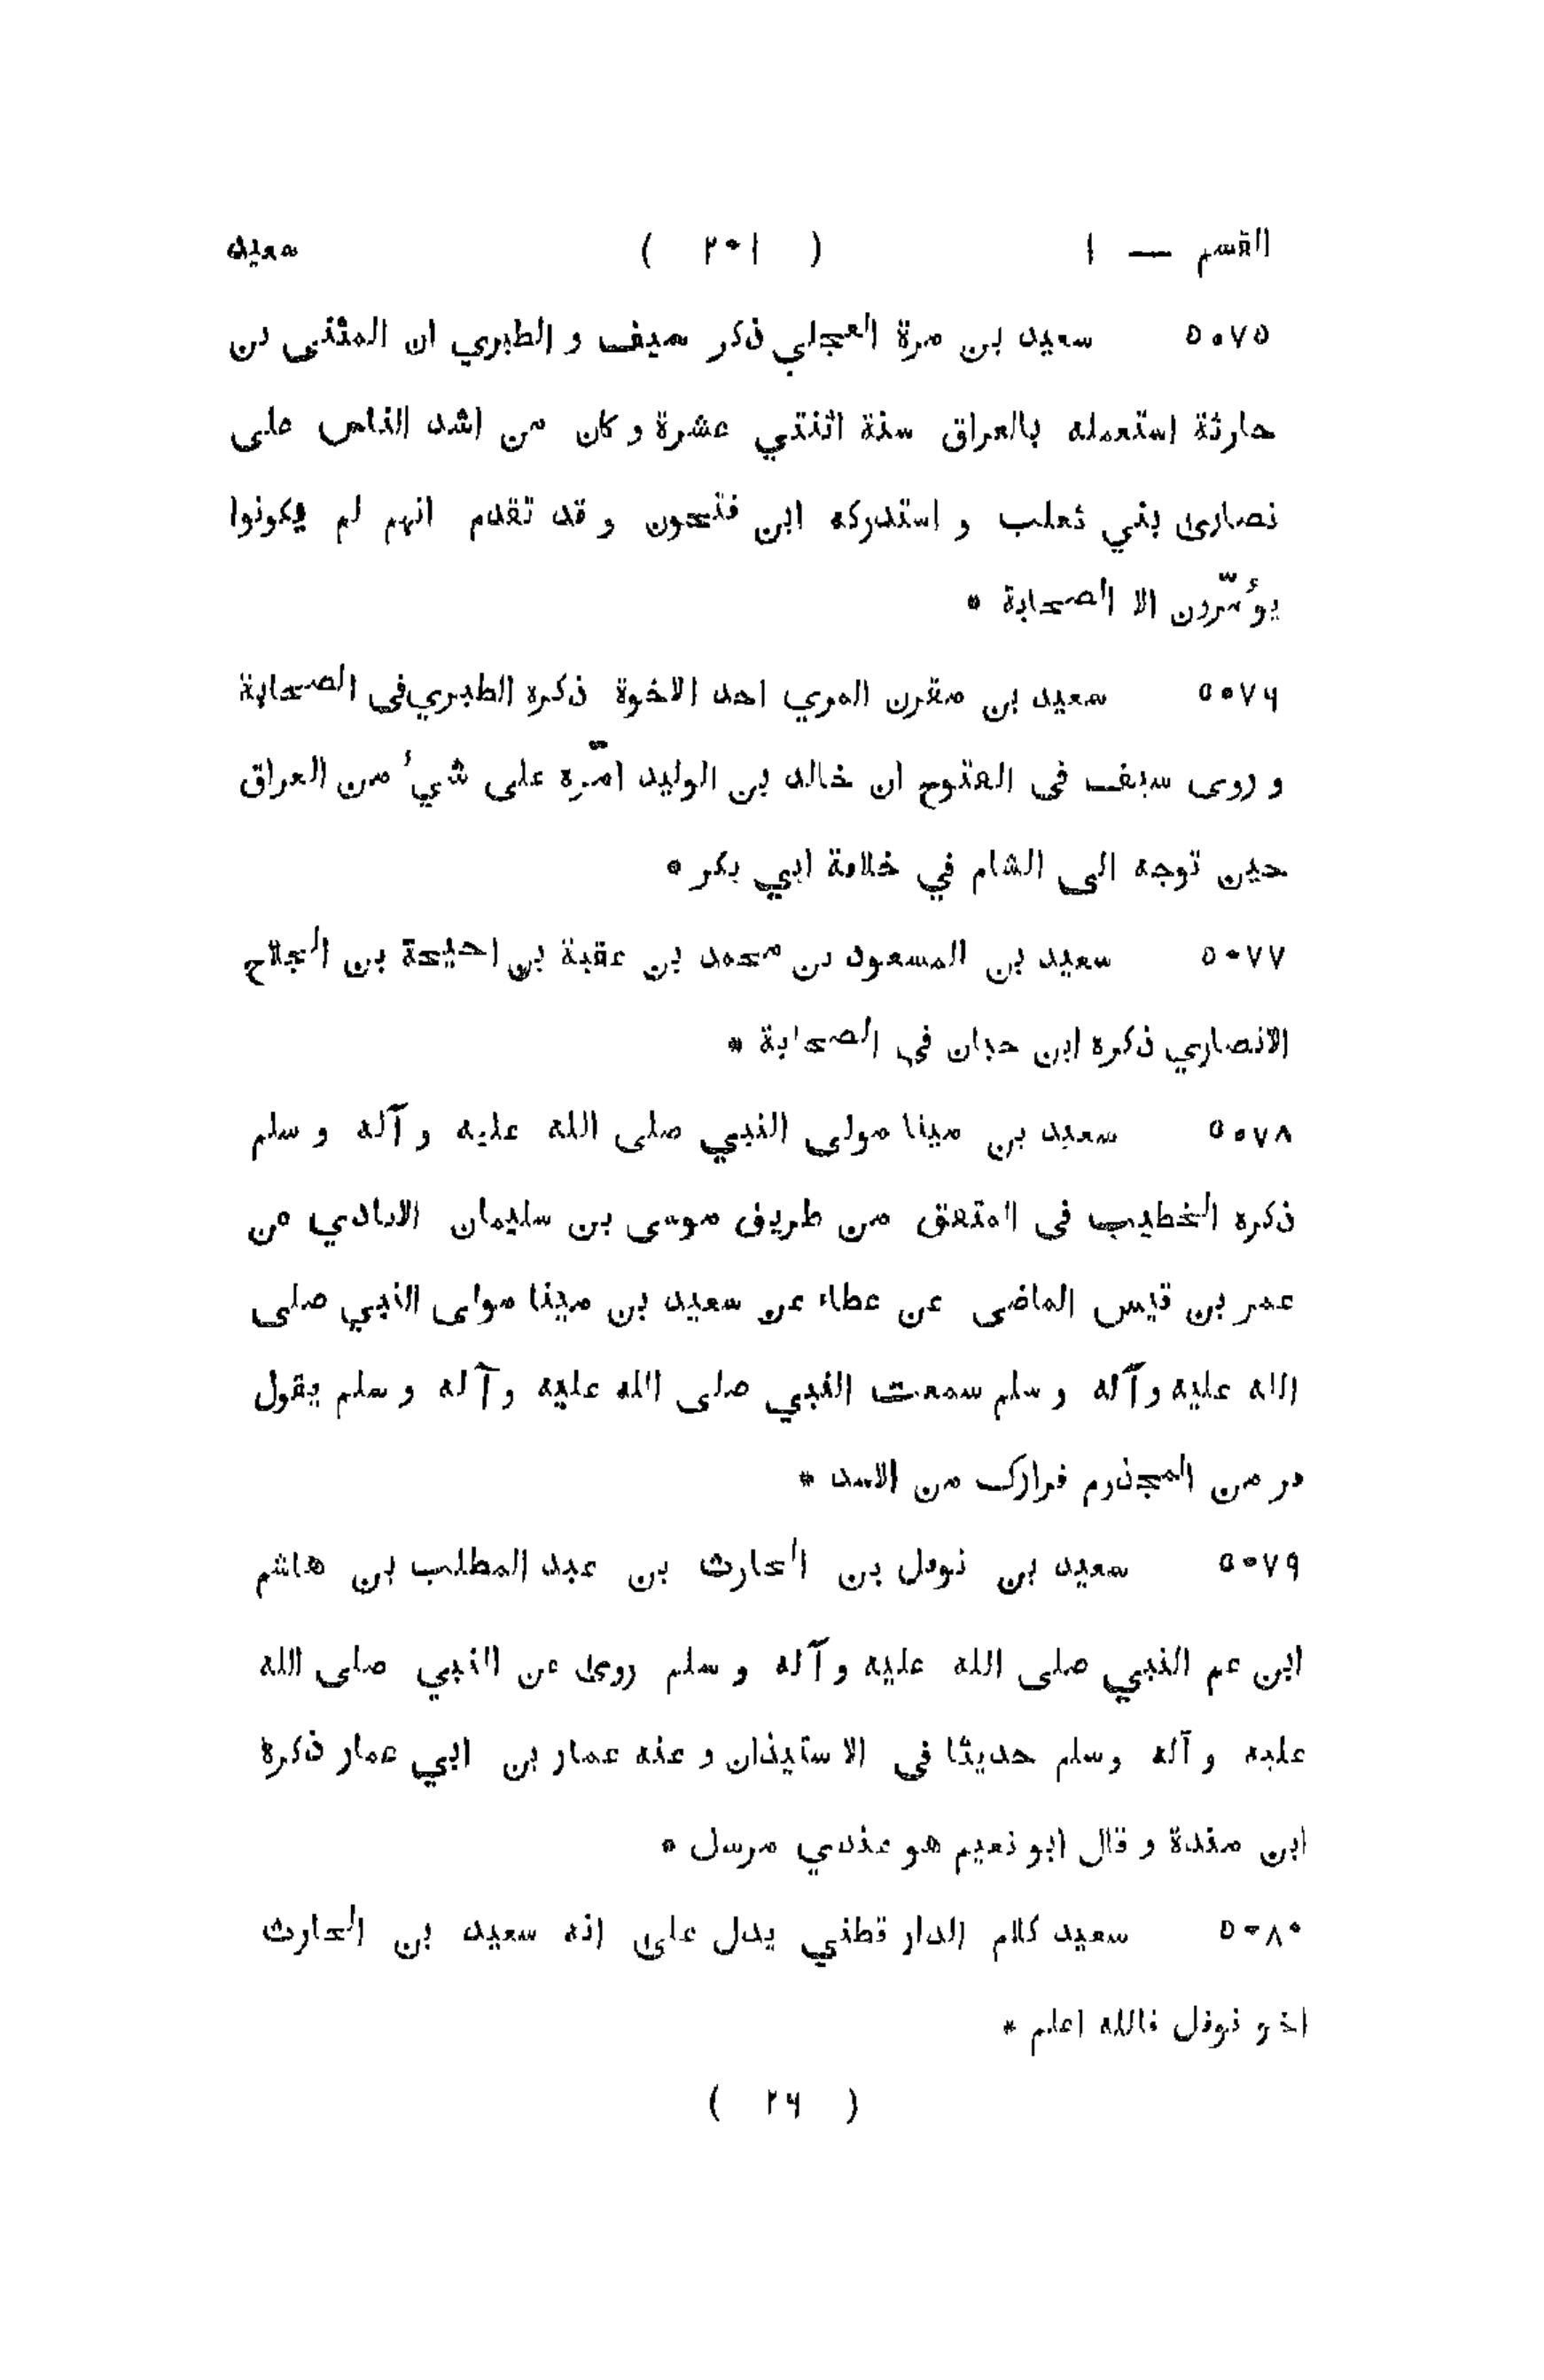 القسم — ١ ( ٢٠١ ) سعيد
٥٠٧٥ سعيد بن مرة العجلي ذكر سيف و الطبري ان المثنى بن
حارثة استعمله بالعراق سنة اثنتي عشرة و كان من اشد الناس على
نصارى بني ثعلب و استدركه ابن فتحون و قد تقدم انهم لم يكونوا
يؤمّرون الا الصحابة *
٥٠٧٦ سعيد بن مقرن المري احد الاخوة ذكره الطبري فى الصحابة
و روى سيف فى الفتوح ان خالد بن الوليد امّره على شيء من العراق
حين توجه الى الشام في خلافة ابي بكر *
٥٠٧٧ سعيد بن المسعود بن محمد بن عقبة بن احيحة بن الجلاح
الانصاري ذكره ابن حبان فى الصحابة *
٥٠٧٨ سعيد بن مينا مولى النبي صلى الله عليه و آله و سلم
ذكره الخطيب فى المتفق من طريق موسى بن سليمان الايادي من
عمر بن قيس الماضى عن عطاء عن سعيد بن مينا مولى النبي صلى
الله عليه و آله و سلم سمعت النبي صلى الله عليه و آله و سلم يقول
فر من المجذوم فرارك من الاسد *
٥٠٧٩ سعيد بن نوفل بن الحارث بن عبد المطلب بن هاشم
ابن عم النبي صلى الله عليه و آله و سلم روى عن النبي صلى الله
عليه و آله وسلم حديثا فى الاستيذان و عنه عمار بن ابي عمار ذكره
ابن مندة و قال ابو نعيم هو عندي مرسل *
٥٠٨٠ سعيد كلام الدار قطني يدل على انه سعيد بن الحارث
اخو نوفل فالله اعلم *
( ٢٦ )